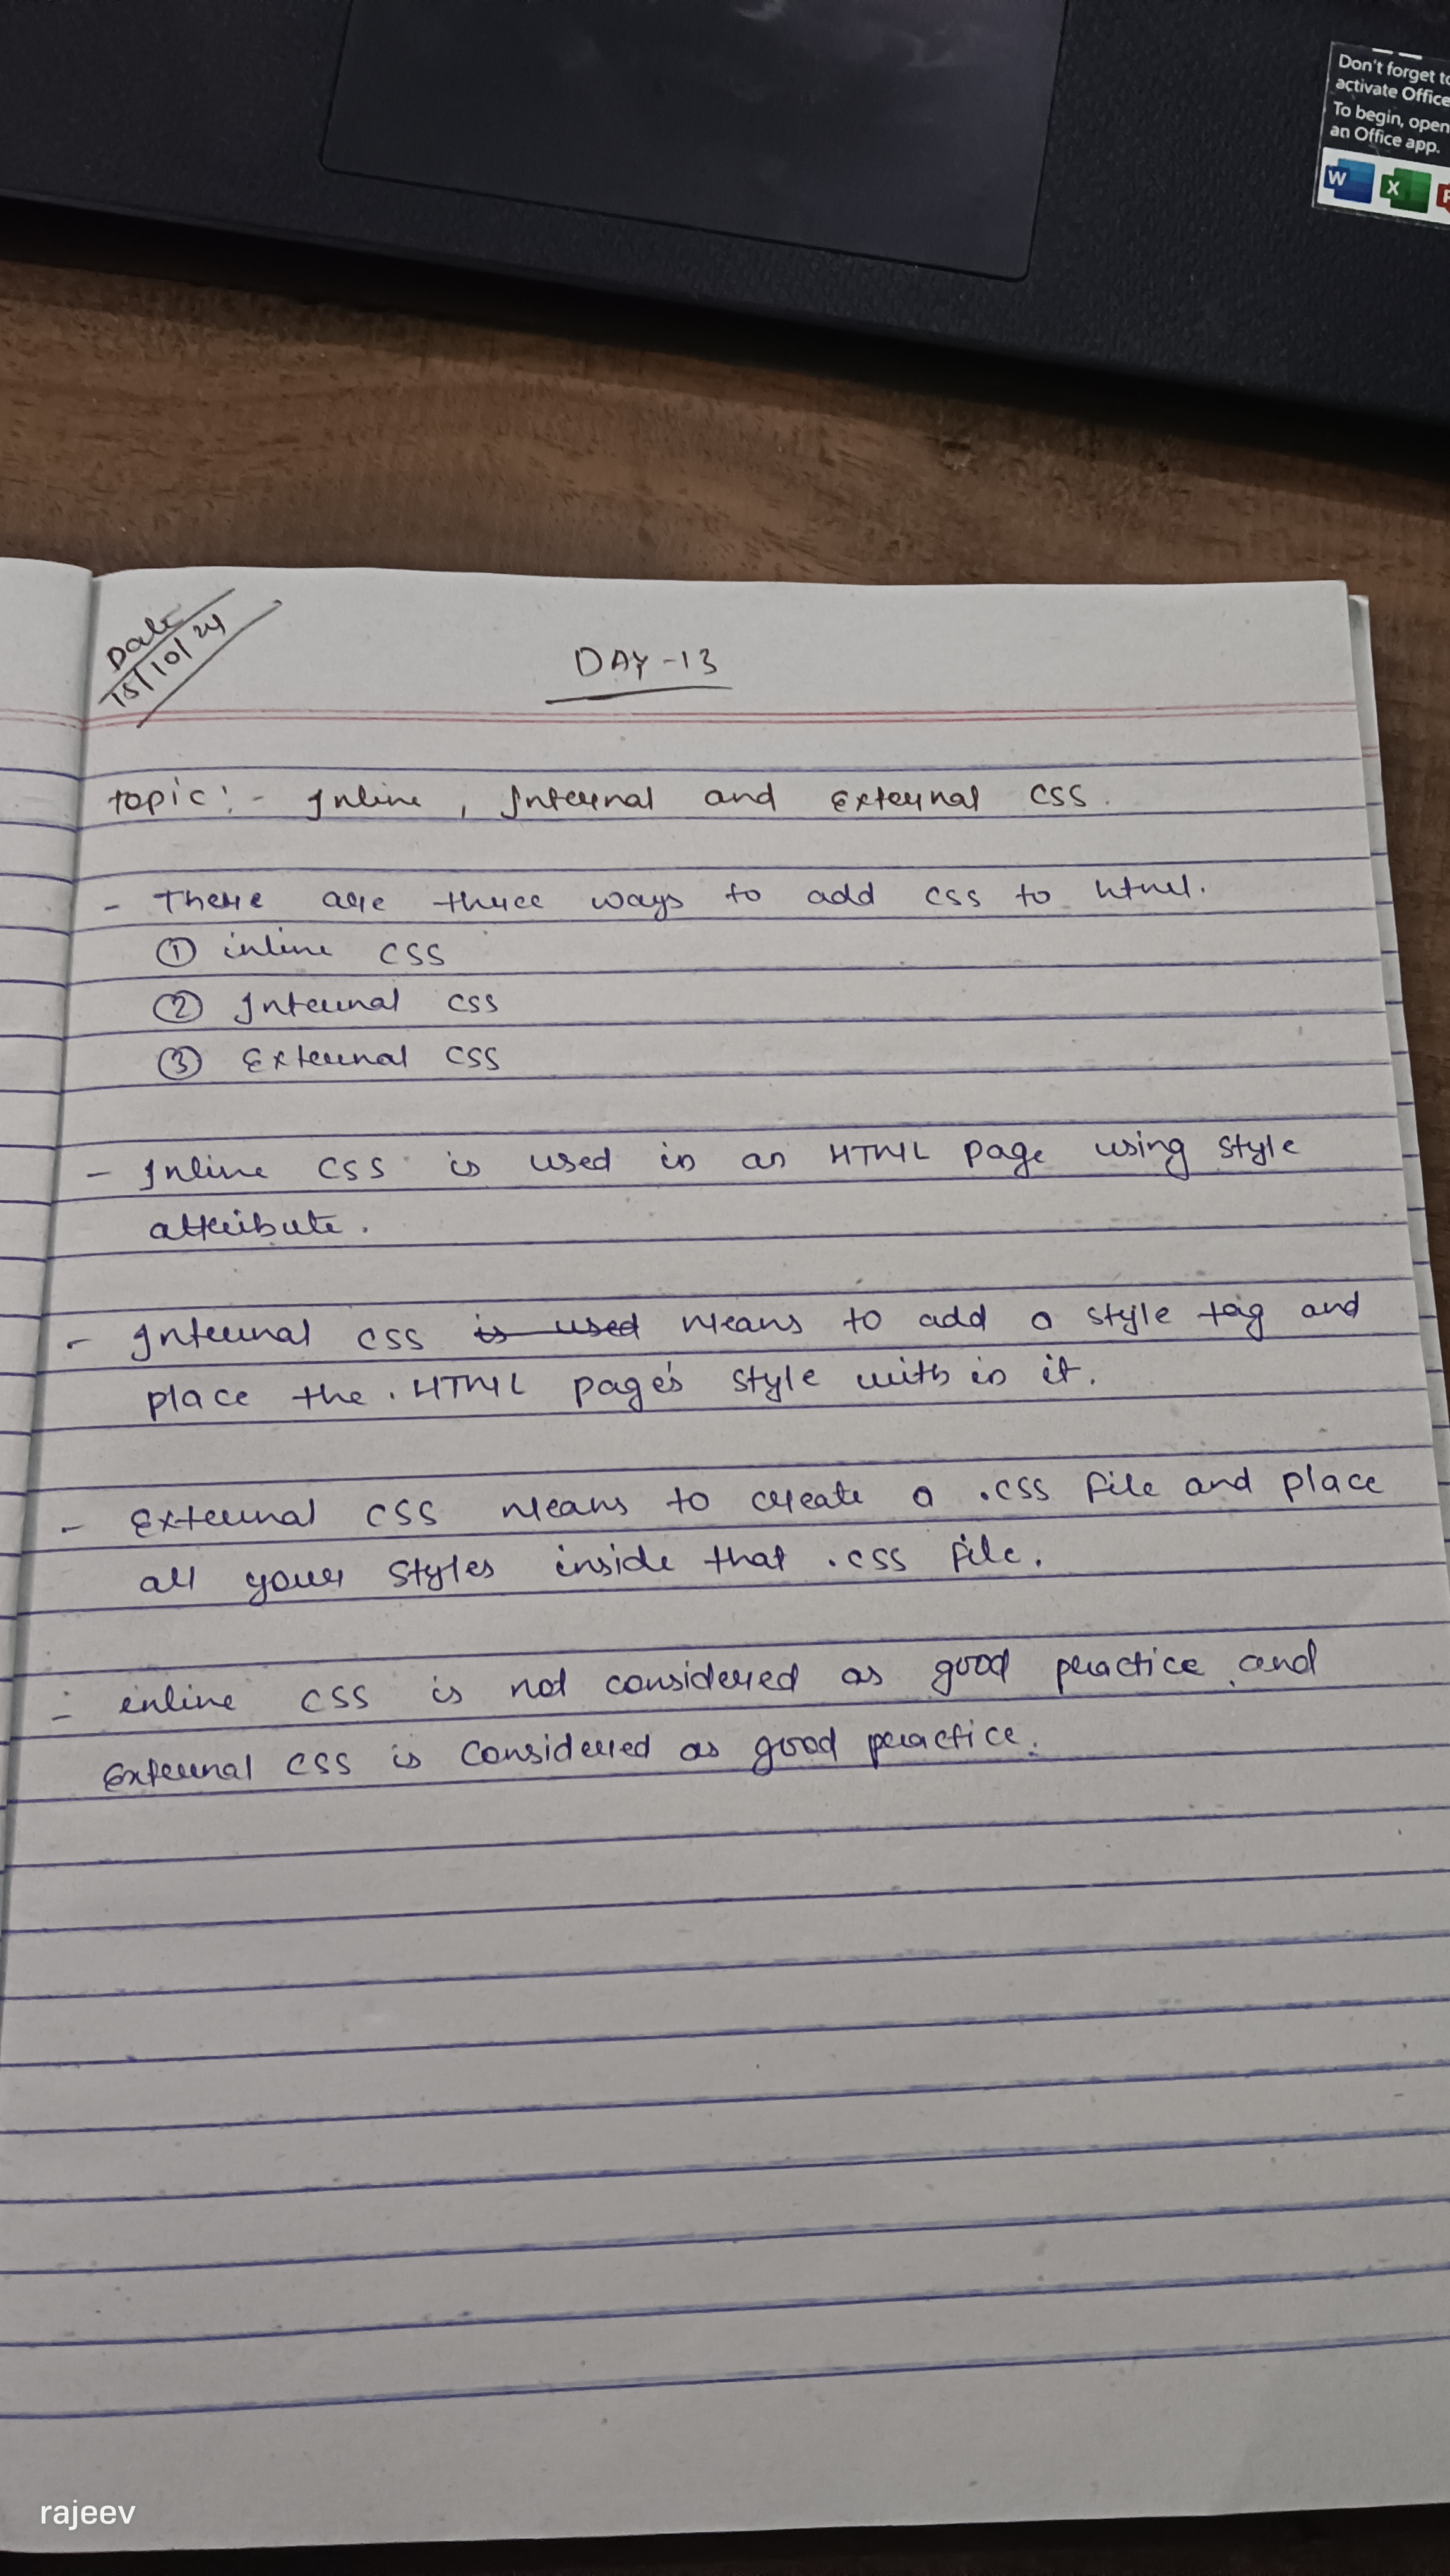 Don't forget to
activate Office
To begin, open
an Office app.
W X P
Date
15/10/24
DAY-13
topic:- Inline, Internal and External CSS.
- There are three ways to add css to html.
① inline CSS
② Internal CSS
③ External CSS
- Inline CSS is used in an HTML page using style
attribute.
- Internal CSS is used means to add a style tag and
place the .HTML page's style with in it.
- External CSS means to create a .css file and place
all your styles inside that .css file.
- inline CSS is not considered as good practice and
External CSS is considered as good practice.
rajeev